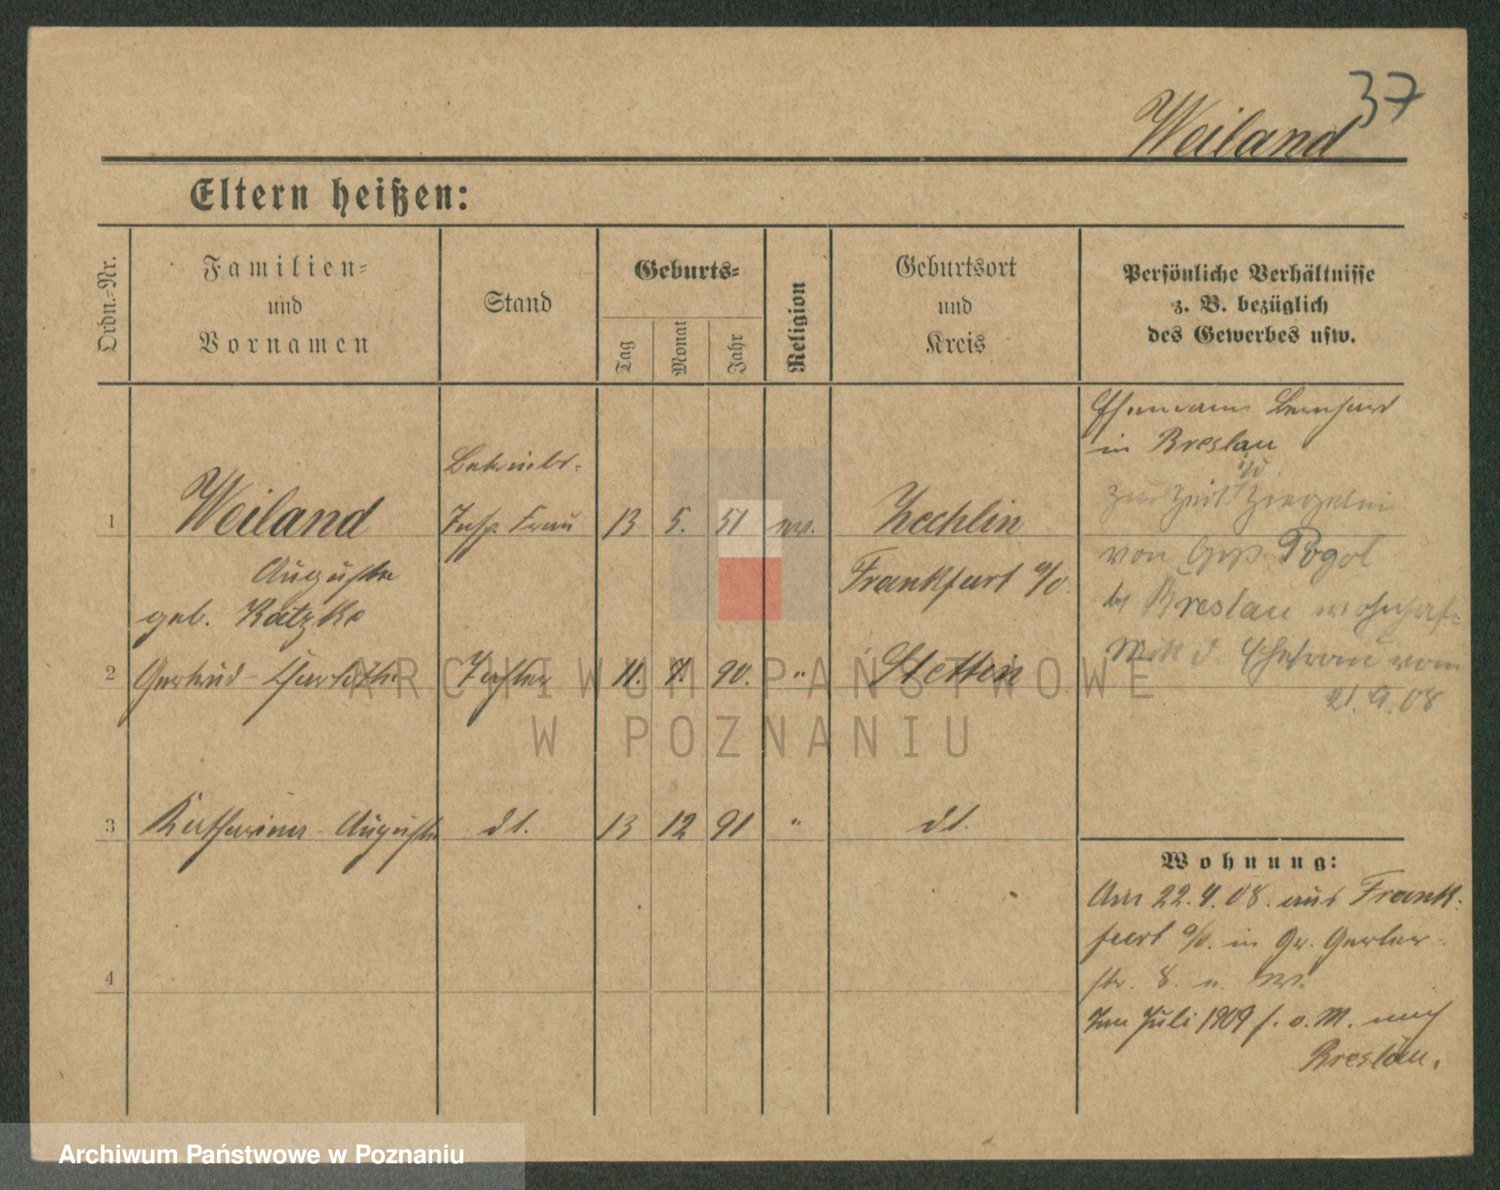 37
Weiland
Eltern heißen:
Ordn.-Nr.
Familien-
und
Vornamen
Stand
Geburts-
Tag
Monat
Jahr
Religion
Geburtsort
und
Kreis
Persönliche Verhältnisse
z. B. bezüglich
des Gewerbes usw.
Ehemann Bernhard
in Breslau
zur Zeit Ziegelei
von Pogol
Breslau wohnhaft
Mitt d. Ehefrau vom
21.9.08
1
Weiland
Auguste
geb. Katzke
Betriebs-
Insp. Frau
13 5. 51 ev.
Zechlin
Frankfurt a/O.
2 Gertrud Charlotte Tochter 11. 7. 90. " Stettin
3 Katharina Auguste dt. 13 12 91 " dt.
4
Wohnung:
Am 22.4.08. aus Frank-
furt a/O. in Gr. Gerber-
str. 8. u. W.
Im Juli 1909 f. o. M. nach
Breslau.
ARCHIWUM PAŃSTWOWE
W POZNANIU
Archiwum Państwowe w Poznaniu